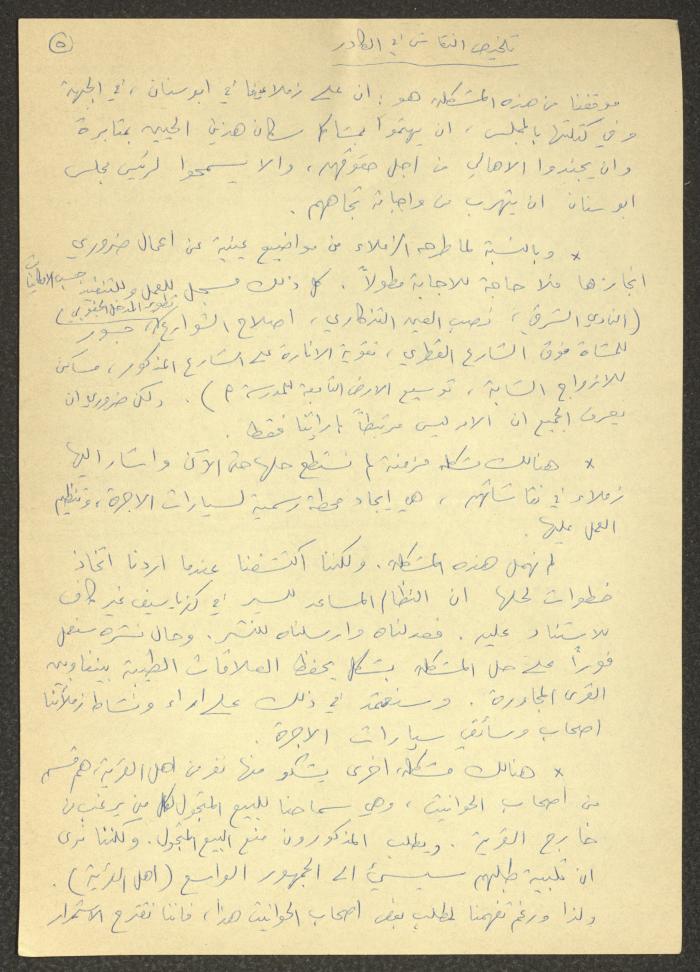 ٥
تلخيص النقاش في الكادر
موقفنا من هذه المشكلة هو: ان على زملاءنا في ابو سنان، في الجبهة
وفي كتلتها بالمجلس، ان يهتموا بمشاكل سكان هذين الحيين بمثابرة
وان يجندوا الاهالي من اجل حقوقهم، والا يسمحوا لرئيس مجلس
ابو سنان ان يتهرب من واجباته تجاههم.
* وبالنسبة لما طرحه الزملاء من مواضيع عينية عن اعمال ضروري
انجازها فلا حاجة للاجابة مطولاً. كل ذلك مسجل للعمل وللتنفيذ حسب الامكانيات
(النادي الشرقي، نصب العين التذكاري، اصلاح الشوارع، تطوير المدخل الجنوبي، جسور
للمشاة فوق الشارع القطري، تقوية الانارة على الشارع المذكور، مساكن
للازواج الشابة، توسيع الارض التابعة للمدرسة م). ولكن ضروري ان
يعرف الجميع ان الامر ليس مرتبطاً بارادتنا فقط.
* هنالك مشكلة مزمنة لم نستطع حلها حتى الآن واشار اليها
زملاء في نقاشاتهم، هي ايجاد محطة رسمية لسيارات الاجرة، وتنظيم
العمل عليها.
لم نهمل هذه المشكلة. ولكننا اكتشفنا عندما اردنا اتخاذ
خطوات لحلها ان النظام المساعد للسير في كفرياسيف غير كاف
للاستناد عليه. فعدلناه وارسلناه للنشر. وحال نشره سنعمل
فوراً على حل المشكلة بشكل يحفظ العلاقات الطيبة بيننا وبين
القرى المجاورة. وسنعتمد في ذلك على اراء ونشاط زملائنا
اصحاب وسائقي سيارات الاجرة.
* هنالك مشكلة اخرى يشكو منها نفر من اهل القرية، هم قسم
من أصحاب الحوانيت، وهي سماحنا للبيع المتجول لكل من يرغب من
خارج القرية. ويطلب المذكورون منع البيع المتجول. ولكننا نرى
ان تلبية طلبهم سيسيئ الى الجمهور الواسع (اهل القرية).
ولذا ورغم تفهمنا لمطلب بعض اصحاب الحوانيت هذا، فاننا نقترح الاستمرار